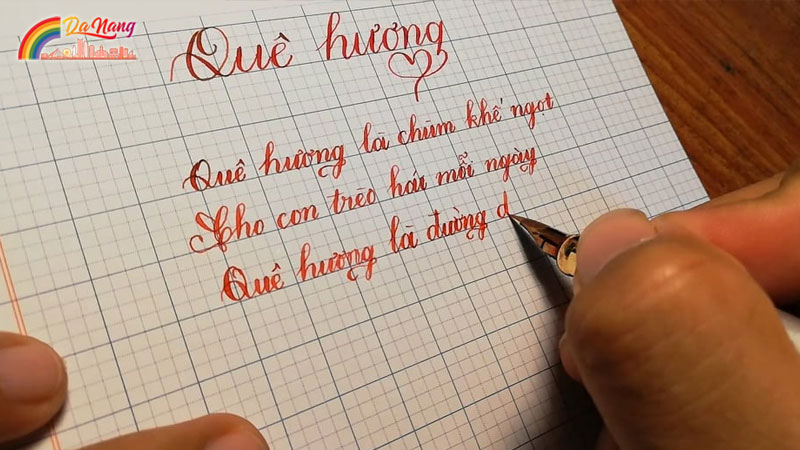 Da Nang
Quê hương
Quê hương là chùm khế ngọt
Cho con trèo hái mỗi ngày
Quê hương là đường đ